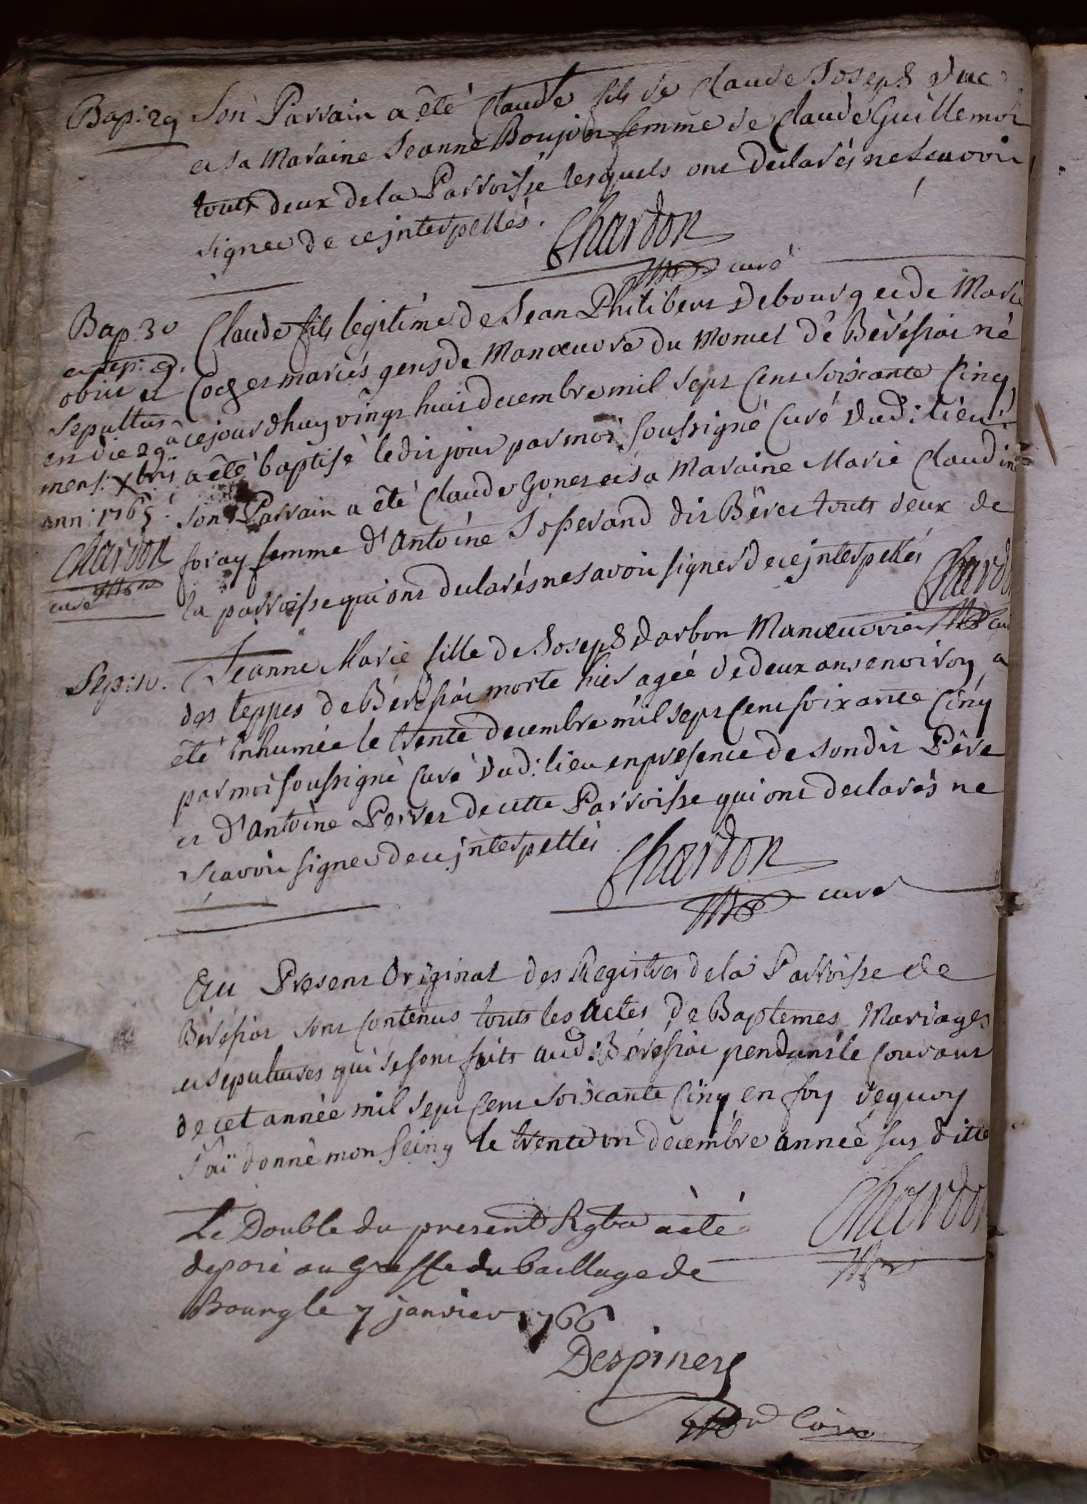 Bap: 29 Son Parrain a êté Claude fils de Claude Joseph Duc
et sa Maraine Jeanne Boujon femme de Claude Guillemot
touts deux de la Parroisse lesquels ont declarés ne sçavoir
signer de ce jnterpellés. Chardon
curé
Bap. 30
et sep: 9.
obiit et
sepultus
en die 29a
mens: xbris
ann: 1765.
Chardon
curé
Claude fils legitime de Jean Philibert Debourg et de Marie
Cochet mariés gens de Manœuvre du Moncel de Béréziat né
cejourdhuy vingt huit decembre mil sept Cent soixante Cinq
a êté baptisé ledit jour par moi soussigné Curé dud: lieu
son Parrain a êté Claude Gonet et sa Maraine Marie Claudine
foray femme d'Antoine Josserand dit Béret touts deux de
la parroisse qui ont declarés ne savoir signer de ce jnterpellés Chardon
Sep: 10. Jeanne Marie fille de Joseph Darbon Manœuvrier
des teppes de Béréziat morte hier agée de deux ans environ a
êté inhumée le trente decembre mil sept Cent soixante Cinq
par moi soussigné Curé dud: lieu en presence de son dit Père
et d'Antoine Perret de cette Parroisse qui ont declarés ne
sçavoir signer de ce jnterpellés Chardon
curé
Au Present Original des Registres de la Parroisse de
Béréziat sont Contenus touts les Actes de Baptemes Mariages
et sepultures qui se sont faits aud: Béréziat pendant le Courant
de cet année mil sept Cent soixante Cinq en foy dequoy
J'aÿ donné mon Seing le trente un decembre année sus ditte
Chardon
Le Double du present Rgtre a êté
deposé au Greffe du bailliage de
Bourg le 7 janvier 1766
Despiney